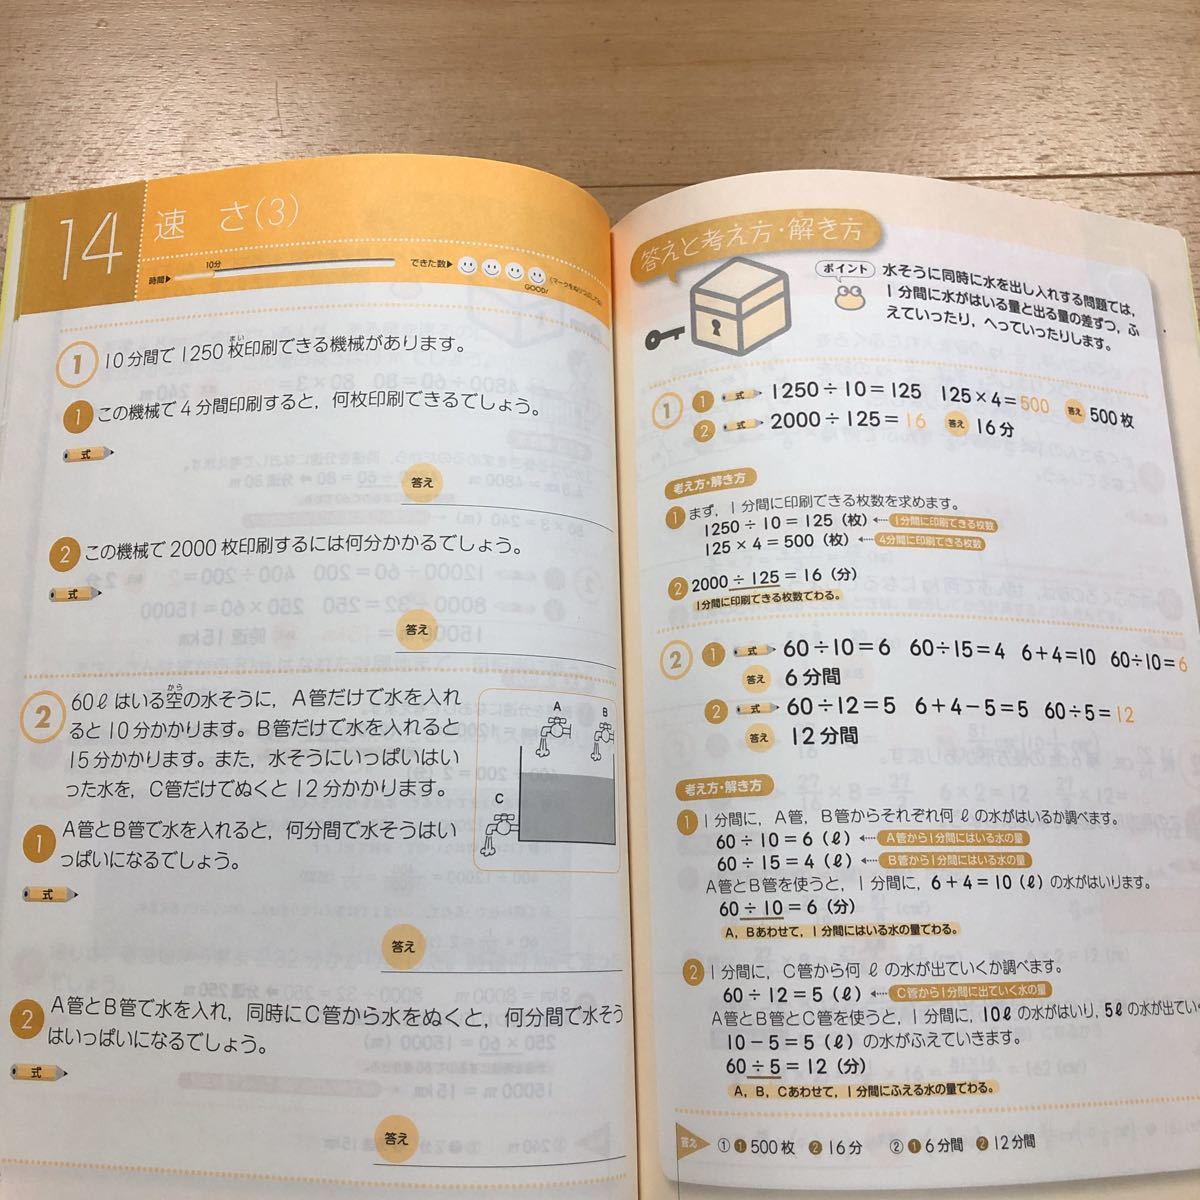 14
速 さ(3)
時間▶
10分
できた数▶
GOOD!
1
10分間で1250枚印刷できる機械があります。
まい
1 この機械で4分間印刷すると，何枚印刷できるでしょう。
式
答え
2 この機械で2000枚印刷するには何分かかるでしょう。
式
答え
2
60ℓはいる空の水そうに，A管だけで水を入れ
から
ると10分かかります。B管だけで水を入れると
15分かかります。また，水そうにいっぱいはい
った水を，C管だけでぬくと12分かかります。
A
B
C
1 A管とB管で水を入れると，何分間で水そうはい
っぱいになるでしょう。
式
答え
2 A管とB管で水を入れ，同時にC管から水をぬくと，何分間で水そう
はいっぱいになるでしょう。
式
答え
答えと考え方・解き方
ポイント
水そうに同時に水を出し入れする問題では，
1分間に水がはいる量と出る量の差ずつ，ふ
えていったり，へっていったりします。
1
1 式 1250÷10＝125 125×4＝500 答え 500枚
2 式 2000÷125＝16 答え 16分
考え方・解き方
1 まず，1分間に印刷できる枚数を求めます。
1250÷10＝125（枚） 1分間に印刷できる枚数
125×4＝500（枚） 4分間に印刷できる枚数
2 2000÷125＝16（分）
1分間に印刷できる枚数でわる。
2
1 式 60÷10＝6 60÷15＝4 6＋4＝10 60÷10＝6
答え 6分間
2 式 60÷12＝5 6＋4－5＝5 60÷5＝12
答え 12分間
考え方・解き方
1 1分間に，A管，B管からそれぞれ何ℓの水がはいるか調べます。
60÷10＝6（ℓ） A管から1分間にはいる水の量
60÷15＝4（ℓ） B管から1分間にはいる水の量
A管とB管を使うと，1分間に，6＋4＝10（ℓ）の水がはいります。
60÷10＝6（分）
A，Bあわせて，1分間にはいる水の量でわる。
2 1分間に，C管から何ℓの水が出ていくか調べます。
60÷12＝5（ℓ） C管から1分間に出ていく水の量
A管とB管とC管を使うと，1分間に，10ℓの水がはいり，5ℓの水が出てい
10－5＝5（ℓ）の水がふえていきます。
60÷5＝12（分）
A，B，Cあわせて，1分間にふえる水の量でわる。
答え ①❶500枚 ❷16分 ②❶6分間 ❷12分間